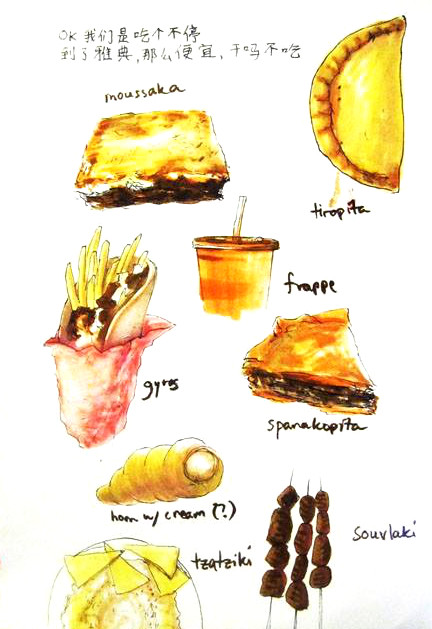 OK 我们是吃个不停
到了雅典,那么便宜,干吗不吃
moussaka
tiropita
frappe
gyros
spanakopita
horn w/ cream (?)
souvlaki
tzatziki